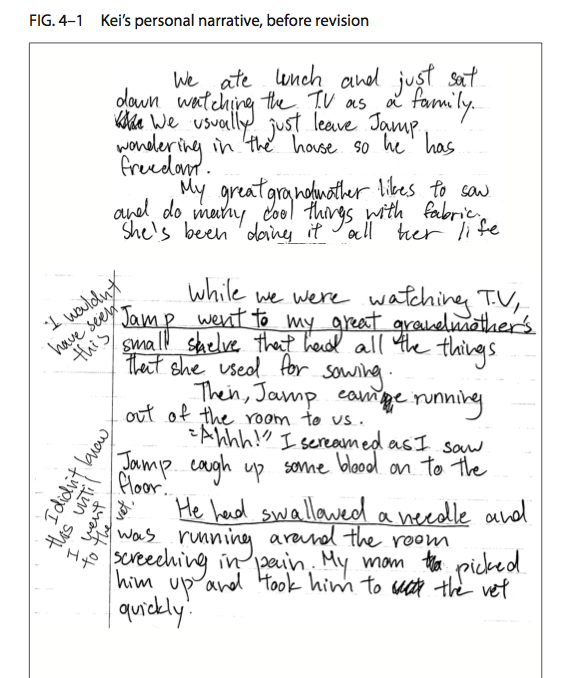 FIG. 4–1 Kei's personal narrative, before revision
We ate lunch and just sat
down watching the T.V as a family.
We usually just leave Jamp
wondering in the house so he has
freedom.
My great grandmother likes to saw
and do many cool things with fabric.
She's been doing it all her life
While we were watching T.V,
Jamp went to my great grandmother's
small shelve that had all the things
that she used for sowing.
Then, Jamp came running
out of the room to us.
"Ahhh!" I screamed as I saw
Jamp cough up some blood on to the
floor.
He had swallowed a needle and
was running around the room
screeching in pain. My mom picked
him up and took him to the vet
quickly.
I wouldn't
have seen
this
I didn't know
this until
I went
to the vet.